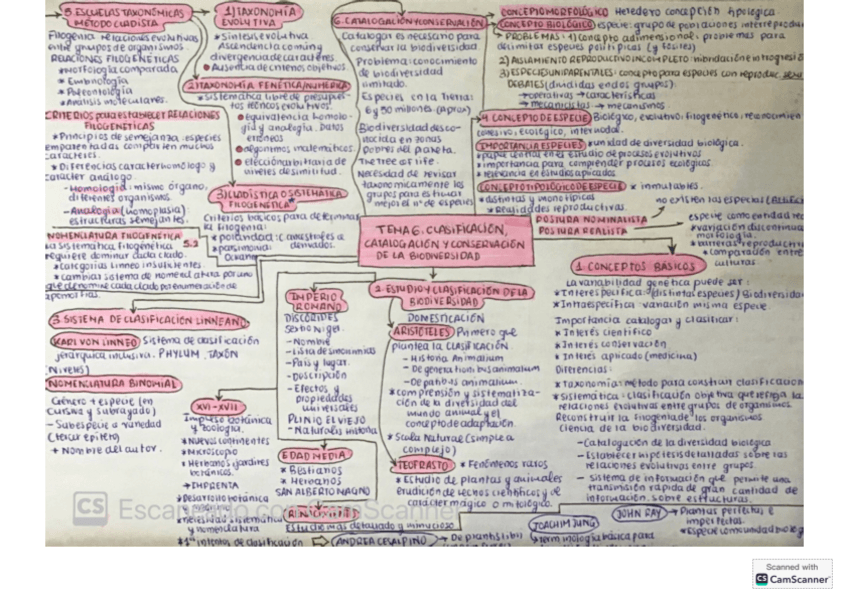 5 ESCUELAS TAXONÓMICAS
MÉTODO CLADISTA
Filogenia: relaciones evolutivas
entre grupos de organismos.
RELACIONES FILOGENÉTICAS
*Morfología comparada
* Embriología
* Paleontología
*Análisis moleculares.
CRITERIOS para ESTABLECER RELACIONES
FILOGENÉTICAS
*Principios de semejanza: especies
emparentadas comparten muchos
caracteres.
* Diferencias carácter homólogo y
carácter análogo.
- Homología: mismo órgano,
diferentes organismos.
- Analogía (homoplasia)
estructuras semejantes.
NOMENCLATURA FILOGENÉTICA
La sistemática filogenética 5.3
requiere dominar cada clado.
*categorías Linneo insuficientes.
*cambiar sistema de nomenclatura por uno
que denomine cada clado por enumeración de
apomorfías.
3 SISTEMA DE CLASIFICACIÓN LINNEANO
KARL VON LINNEO Sistema de clasificación
jerárquica inclusiva. PHYLUM, TAXÓN
(NIVELES)
NOMENCLATURA BINOMIAL
Género + especie (en
cursiva y subrayado)
-Subespecie o variedad
(tercer epíteto)
+ Nombre del autor.
1) TAXONOMÍA
EVOLUTIVA
*Síntesis evolutiva
Ascendencia común y
divergencia de caracteres
Ausencia de criterios objetivos.
2) TAXONOMÍA FENÉTICA/NUMÉRICA
*Sistemática libre de presupues-
tos teóricos evolutivos.
equivalencia homolo-
gía y analogía. Datos
erróneos
algoritmos matemáticos.
elección arbitraria de
niveles de similitud.
3) CLADÍSTICA O SISTEMÁTICA
FILOGENÉTICA
Criterios básicos para determinar
la filogenia:
*polaridad: caracteres
derivados.
*parsimonia:
6. CATALOGACIÓN Y CONSERVACIÓN
Catalogar es necesario para
conservar la biodiversidad.
Problema: conocimiento
de biodiversidad
limitado.
Especies en la tierra:
6 y 50 millones (aprox)
Biodiversidad desco-
nocida en zonas
pobres del planeta.
The tree of life.
Necesidad de revisar
taxonómicamente los
grupos para estimar
mejor el nº de especies
CONCEPTO MORFOLÓGICO Heredero concepción tipológica.
CONCEPTO BIOLÓGICO especie: grupo de poblaciones interreprodu
PROBLEMAS: 1) Concepto adimensional: problemas para
delimitar especies politípicas (y fósiles)
2) AISLAMIENTO REPRODUCTIVO INCOMPLETO: hibridación e introgresió
3) ESPECIES UNIPARENTALES: concepto para especies con reproduc. sexu
DEBATES (divididas en dos grupos):
→operativas → características
→mecanicistas → mecanismos
4 CONCEPTO DE ESPECIE Biológico, evolutivo, filogenético, reconocimien
cohesivo, ecológico, internodal.
IMPORTANCIA ESPECIES *unidad de diversidad biológica.
*papel central en el estudio de procesos evolutivos
*importancia para comprender procesos ecológicos.
*relevancia en estudios aplicados
CONCEPTO TIPOLÓGICO DE ESPECIE * inmutables.
*distintas y monotípicas
*Realidades reproductivas.
no existen las especies
POSTURA NOMINALISTA
POSTURA REALISTA
especie como entidad re
*variación discontinua
morfología.
*barreras reproductiv
*comparación entre
culturas
TEMA 6. CLASIFICACIÓN,
CATALOGACIÓN Y CONSERVACIÓN
DE LA BIODIVERSIDAD
1. CONCEPTOS BÁSICOS
La variabilidad genética puede ser:
*Interespecífica: (distintas especies) Biodiversida
*Intraespecífica: variación misma especie.
Importancia catalogar y clasificar:
* Interés científico
* Interés conservación
* Interés aplicado (medicina)
Diferencias:
*taxonomía: método para construir clasificacion
*Sistemática: clasificación objetiva que refleja las
relaciones evolutivas entre grupos de organismos.
Reconstruir la filogenia de los organismos
Ciencia de la biodiversidad.
- Catalogación de la diversidad biológica
- Establecer hipótesis detalladas sobre las
relaciones evolutivas entre grupos.
- sistema de información que permite una
transmisión rápida de gran cantidad de
información sobre estructuras.
2. ESTUDIO Y CLASIFICACIÓN DE LA
BIODIVERSIDAD
DOMESTICACIÓN
ARISTÓTELES Primero que
plantea la CLASIFICACIÓN.
- Historia Animalium
- De generationibus animalium
- De patibus animalium.
*comprensión y sistematiza-
ción de la diversidad del
mundo animal y el
concepto de adaptación.
* Scala Naturae (simple a
complejo)
TEOFRASTO * Fenómenos raros
* Estudio de plantas y animales
erudición de hechos científicos y de
carácter mágico o mitológico.
IMPERIO
ROMANO
DISCORIDES
Sextio Niger.
- Nombre
- Lista de sinonimias
- País y lugar.
- Descripción
- Efectos y
propiedades
universales
PLINIO EL VIEJO
- Naturalis Historia
EDAD MEDIA
* Bestiarios
* Herbarios
SAN ALBERTO MAGNO
RENACIMIENTO
Estudio más detallado y minucioso
XVI-XVII
Impulso botánica
y zoología.
*Nuevos continentes
*Microscopio
* Herbarios y jardines
botánicos.
→ IMPRENTA
*Desarrollo botánica
*necesidad sistemática
y nomenclatura
*1os intentos de clasificación
ANDREA CESALPINO → De plantis libri
JOACHIM JUNG
terminología básica para
JOHN RAY → Plantas perfectas e
imperfectas.
*Especie como unidad biológ
CS Escaneado con CamScanner
Scanned with
CS CamScanner